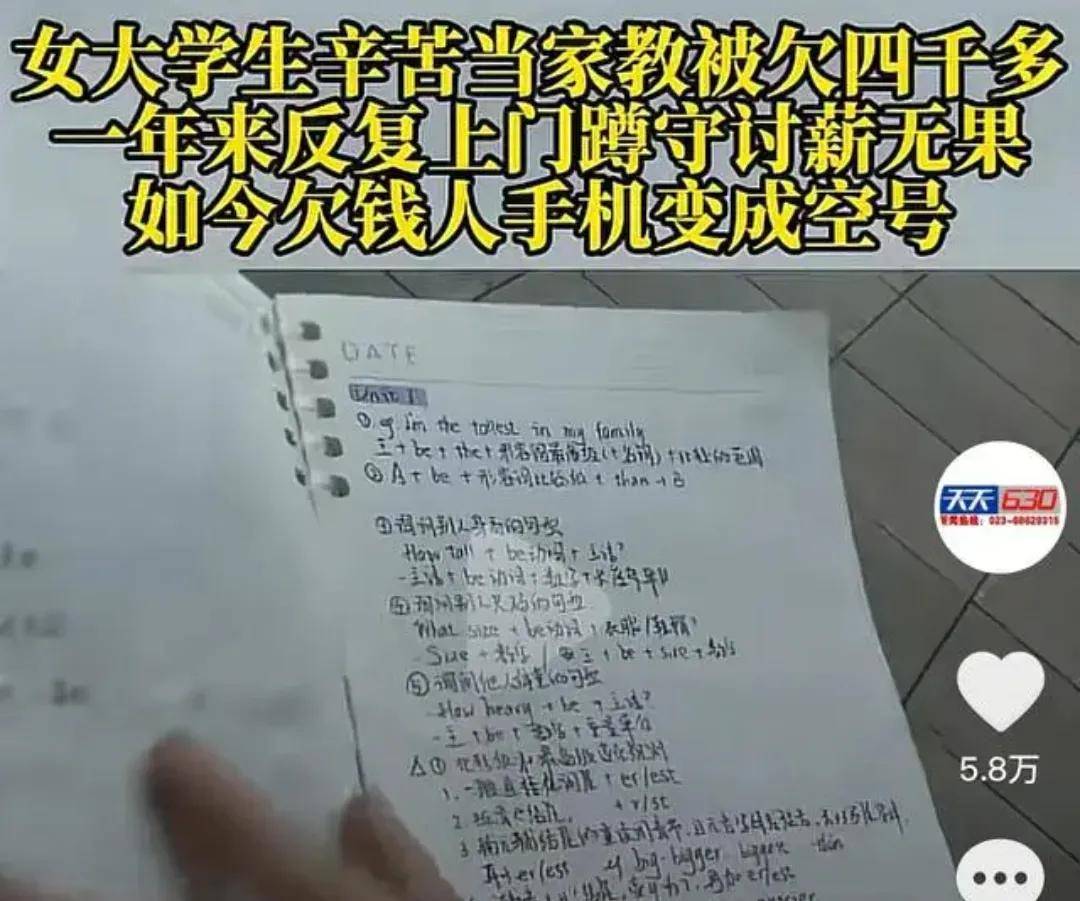 女大学生辛苦当家教被欠四千多
一年来反复上门蹲守讨薪无果
如今欠钱人手机变成空号
DATE
Unit 1
① eg I'm the tallest in my family
主+be+the+形容词最高级(+名词)+比较的范围
② A + be + 形容词比较级 + than + B
③ 询问别人身高的句型
How tall + be动词 + 主语?
-主语+be动词+数字+长度单位
④ 询问别人尺码的句型
What size + be动词 + 衣服/鞋帽?
- Size + 数字 / 主 + be + size + 数字
⑤ 询问他人体重的句型
-How heavy + be + 主语?
-主+be+数字+重量单位
△① 比较级和最高级变化规则
1. 一般直接在词尾 + er/est
+ r/st
er/est eg big-bigger biggest thin
er/est
天天630
023-68629315
5.8万